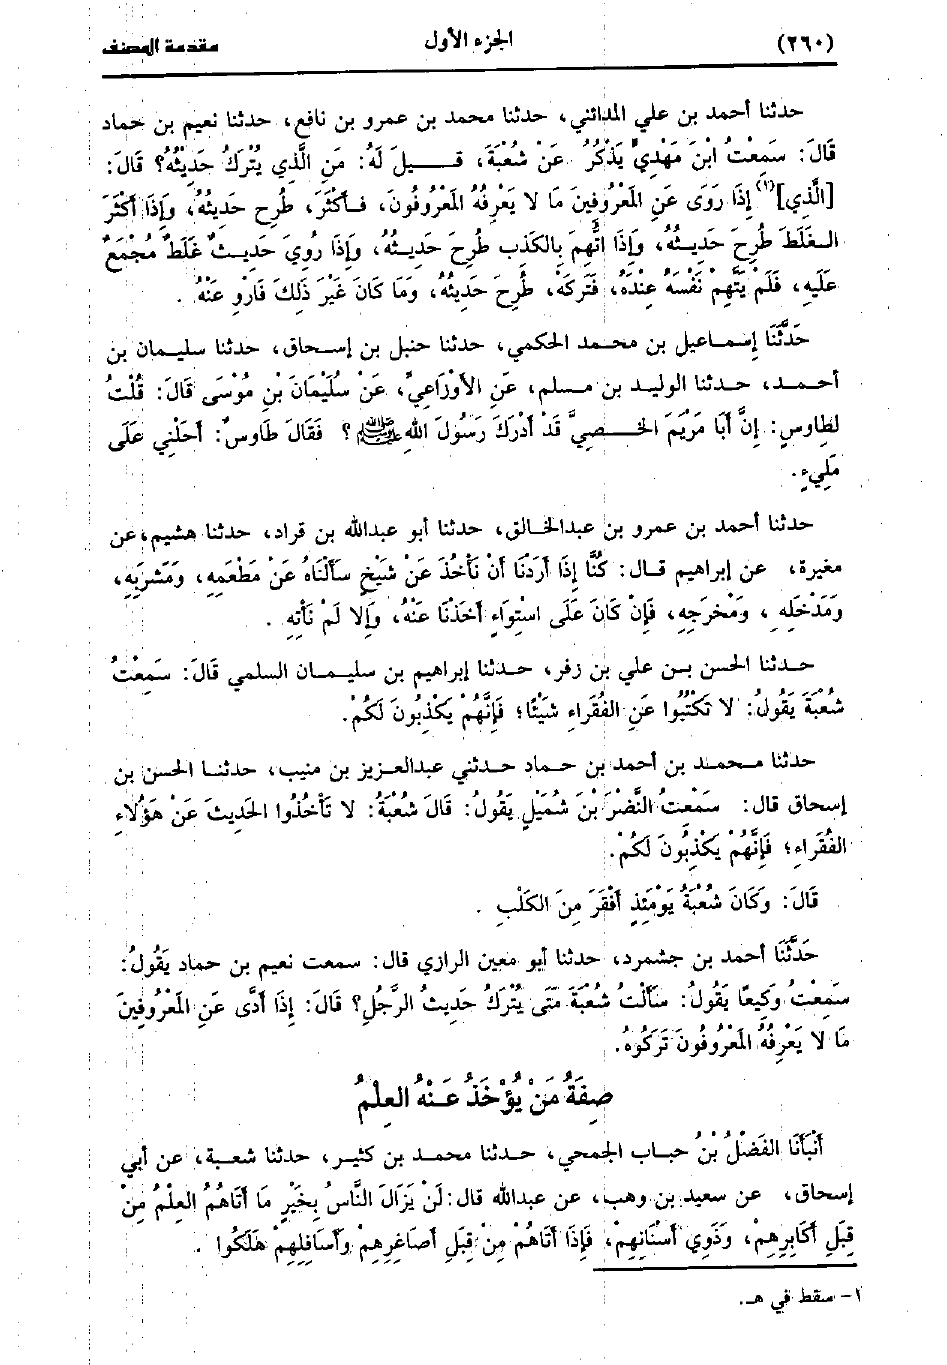 (٢٦٠) الجزء الأول مقدمة المصنف
حدثنا أحمد بن علي المدائني، حدثنا محمد بن عمرو بن نافع، حدثنا نعيم بن حماد
قَالَ: سَمِعْتُ ابْنَ مَهْدِيٍّ يَذْكُرُ عَنْ شُعْبَةَ، قِيلَ لَهُ: مَنِ الَّذِي يُتْرَكُ حَدِيثُهُ؟ قَالَ:
[الَّذِي](١) إِذَا رَوَى عَنِ المَعْرُوفِينَ مَا لا يَعْرِفُهُ المَعْرُوفُونَ، فَأَكْثَرَ، طُرِحَ حَدِيثُهُ، وَإِذَا أَكْثَرَ
الغَلَطَ طُرِحَ حَدِيثُهُ، وَإِذَا اتُّهِمَ بِالكَذب طُرِحَ حَدِيثُهُ، وَإِذَا رُوِيَ حَدِيثٌ غَلَطٌ مُجْمَعٌ
عَلَيهِ، فَلَمْ يَتَّهِمْ نَفْسَهُ عِنْدَهُ، فَتَرَكَهُ، طُرِحَ حَدِيثُهُ، وَمَا كَانَ غَيْرَ ذَلِكَ فَارْوِ عَنْهُ .
حَدَّثَنَا إسماعيل بن محمد الحكمي، حدثنا حنبل بن إسحاق، حدثنا سليمان بن
أحمد، حدثنا الوليد بن مسلم، عَنِ الأَوْزَاعِيِّ، عَنْ سُلَيْمَانَ بْنِ مُوْسَى قَالَ: قُلْتُ
لِطَاوسٍ: إِنَّ أَبَا مَرْيَمَ الخَصِيَّ قَدْ أَدْرَكَ رَسُولَ اللهِ ﷺ ؟ فَقَالَ طَاوسٌ: أَحَلْنِي عَلَى
مَلِيءٍ.
حدثنا أحمد بن عمرو بن عبدالخالق، حدثنا أبو عبدالله بن قراد، حدثنا هشيم، عن
مغيرة، عن إبراهيم قال: كُنَّا إِذَا أَرَدْنَا أَنْ نَأْخُذَ عَنْ شَيْخٍ سَأَلْنَاهُ عَنْ مَطْعَمِهِ، وَمَشْرَبِهِ،
وَمَدْخَلِهِ، وَمَخْرَجِهِ، فَإِنْ كَانَ عَلَى اسْتِوَاءٍ أَخَذْنَا عَنْهُ، وَإِلا لَمْ نَأْتِهِ .
حدثنا الحسن بن علي بن زفر، حدثنا إبراهيم بن سليمان السلمي قَالَ: سَمِعْتُ
شُعْبَةَ يَقُولُ: لا تَكْتُبُوا عَنِ الفُقَرَاء شَيْئًا؛ فَإِنَّهُمْ يَكْذِبُونَ لَكُمْ.
حدثنا محمد بن أحمد بن حماد حدثني عبدالعزيز بن منيب، حدثنا الحسن بن
إسحاق قال: سَمِعْتُ النَّضْرَ بْنَ شُمَيْلٍ يَقُولُ: قَالَ شُعْبَةُ: لا تَأْخُذُوا الحَدِيثَ عَنْ هَؤُلاءِ
الفُقَرَاءِ؛ فَإِنَّهُمْ يَكْذِبُونَ لَكُمْ.
قَالَ: وَكَانَ شُعْبَةُ يَوْمَئِذٍ أَفْقَرَ مِنَ الكَلْبِ .
حَدَّثَنَا أحمد بن جشمرد، حدثنا أبو معين الرازي قال: سمعت نعيم بن حماد يَقُولُ:
سَمِعْتُ وَكِيعًا يَقُولُ: سَأَلْتُ شُعْبَةَ مَتَى يُتْرَكُ حَدِيثُ الرَّجُلِ؟ قَالَ: إِذَا أَدَّى عَنِ المَعْرُوفِينَ
مَا لا يَعْرِفُهُ المَعْرُوفُونَ تَرَكُوهُ.
صِفَةُ مَنْ يُؤْخَذُ عَنْهُ العِلْمُ
أَنْبَأَنَا الفَضْلُ بْنُ حباب الجمحي، حدثنا محمد بن كثير، حدثنا شعبة، عن أبي
إسحاق، عن سعيد بن وهب، عن عبدالله قال: لَنْ يَزَالَ النَّاسُ بِخَيْرٍ مَا أَتَاهُمُ العِلْمُ مِنْ
قِبَلِ أَكَابِرِهِمْ، وَذَوِي أَسْنَانِهِمْ، فَإِذَا أَتَاهُمْ مِنْ قِبَلِ أَصَاغِرِهِمْ وَأَسَافِلِهِمْ هَلَكُوا .
١- سقط في هـ.